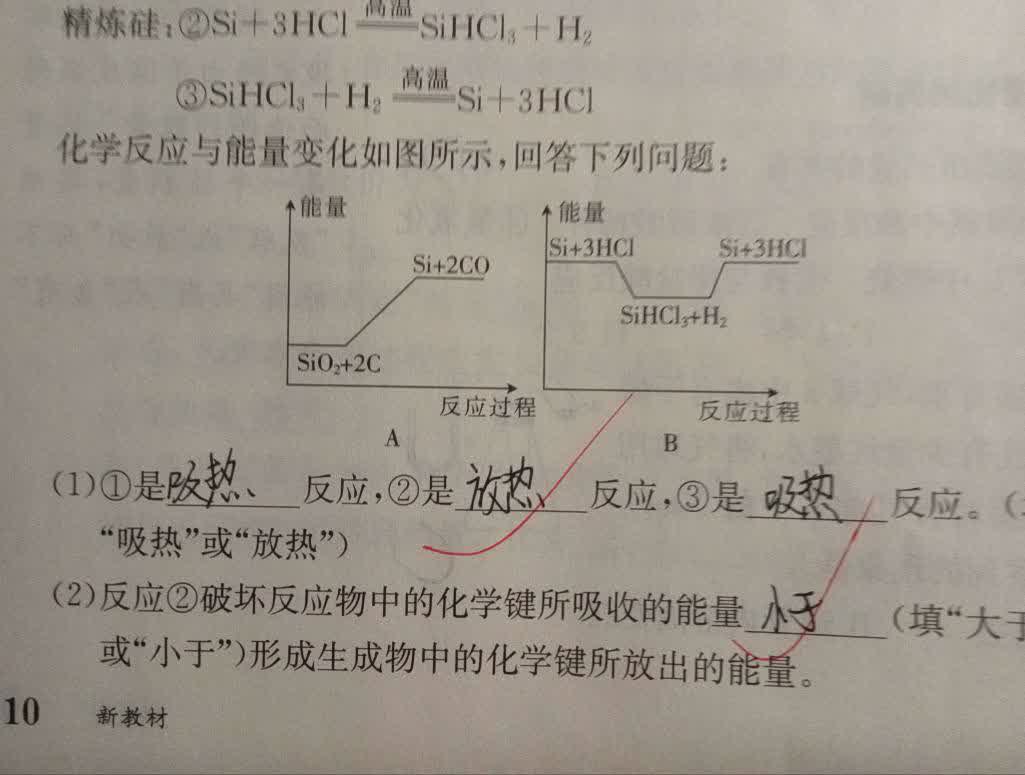 精炼硅:②Si+3HCl 高温 SiHCl₃+H₂
③SiHCl₃+H₂ 高温 Si+3HCl
化学反应与能量变化如图所示,回答下列问题:
能量 能量
Si+3HCl Si+3HCl
Si+2CO
SiHCl₃+H₂
SiO₂+2C
反应过程 反应过程
A B
(1)①是吸热、反应,②是放热、反应,③是吸热反应。(
“吸热”或“放热”)
(2)反应②破坏反应物中的化学键所吸收的能量小于(填“大于
或“小于”)形成生成物中的化学键所放出的能量。
10 新教材